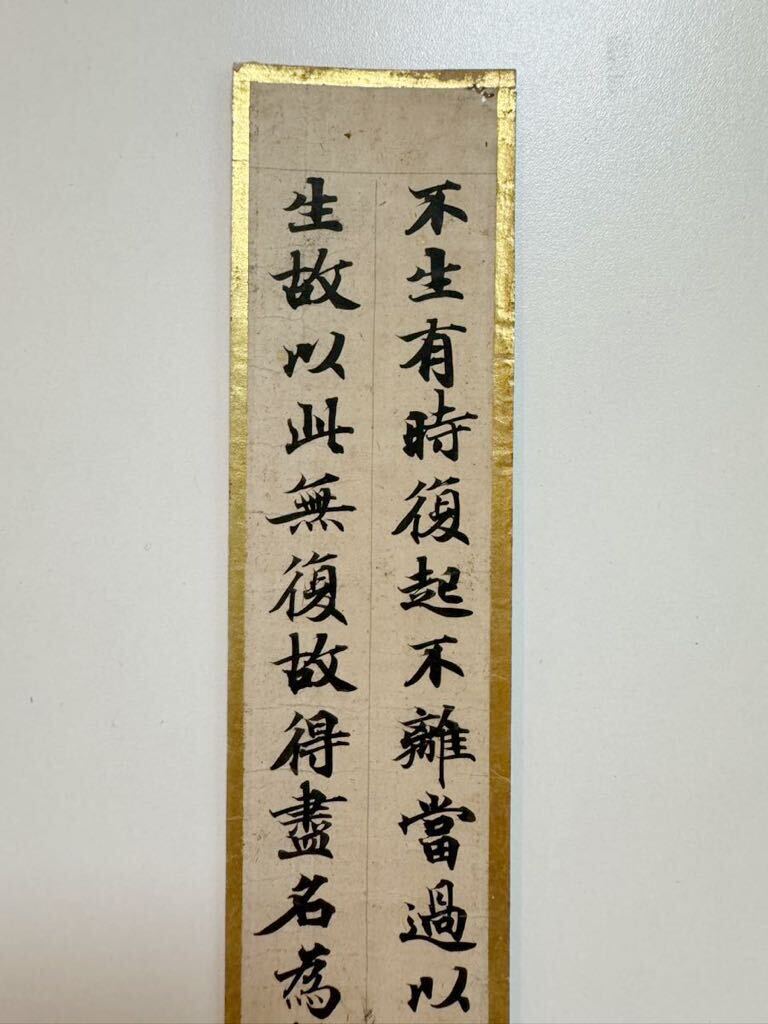 不生有時復起不離當過以
生故以此無復故得盡名為